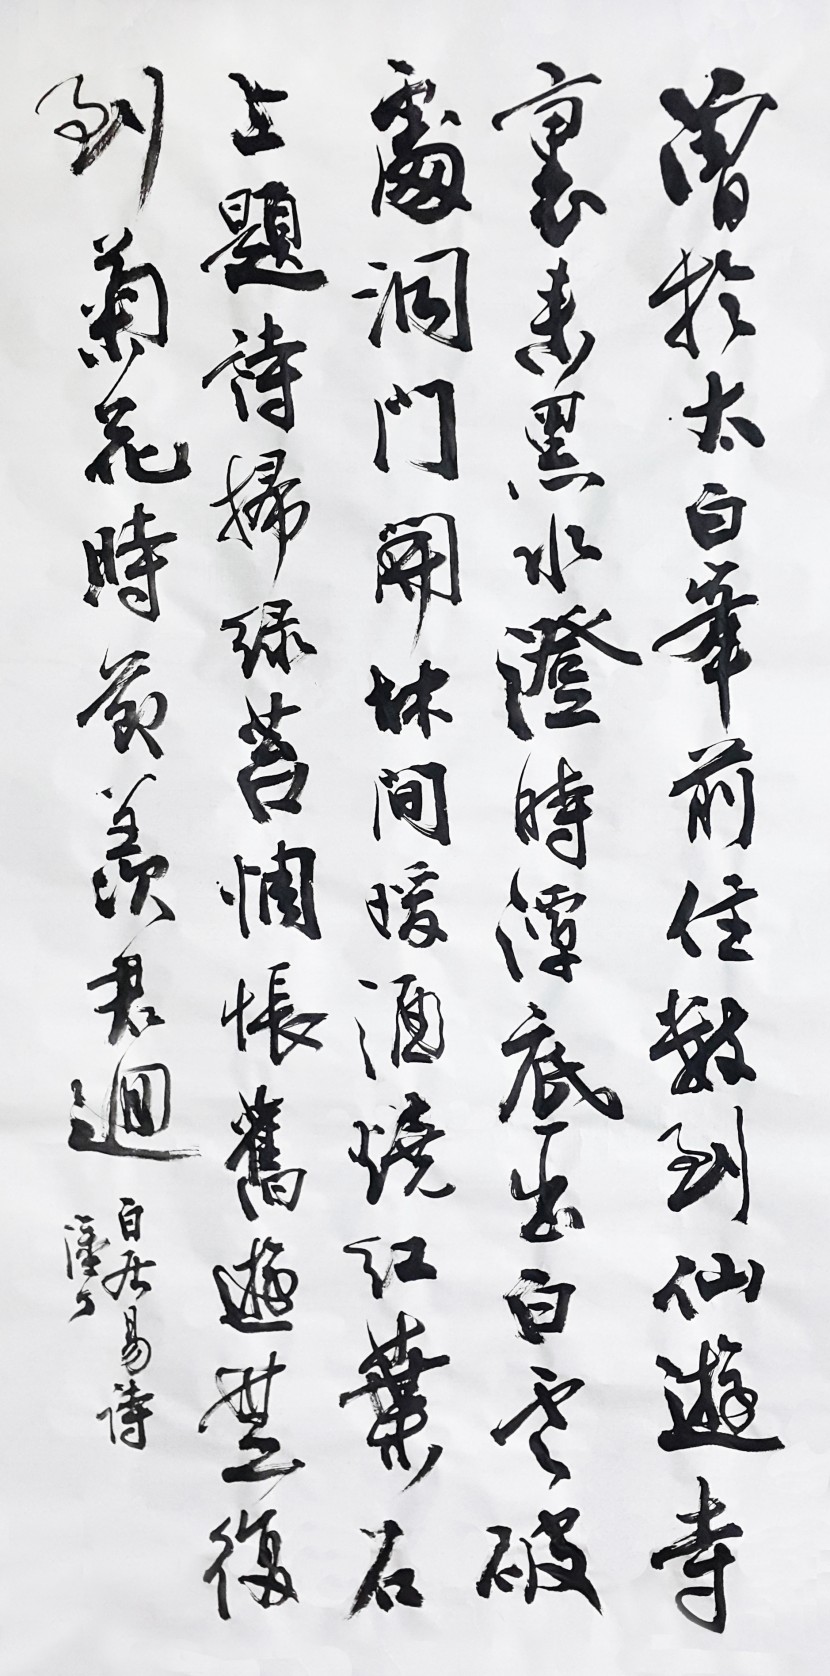 曾於太白峯前住數到仙遊寺
裏来黑水澄時潭底出白雲破
處洞門開林間暖酒燒紅葉石
上題詩掃緑苔惆悵舊遊無復
到菊花時節羨君迴
白居易詩